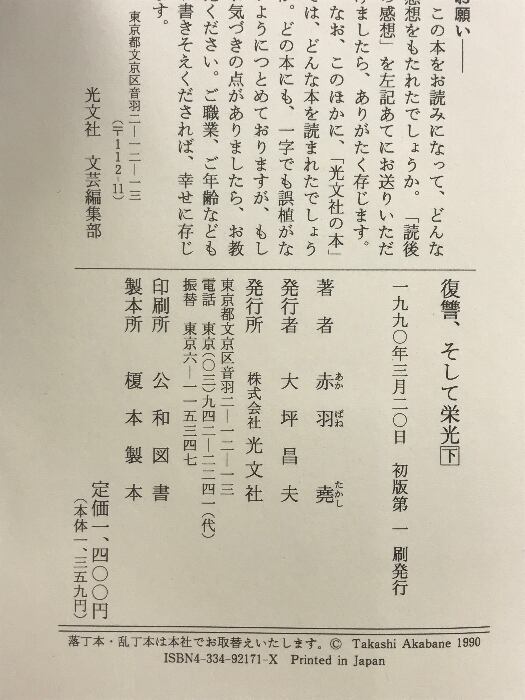 お願い——
この本をお読みになって、どんな
感想をもたれたでしょうか。「読後
の感想」を左記あてにお送りいただ
けましたら、ありがたく存じます。
なお、このほかに、「光文社の本」
では、どんな本を読まれたでしょう
か。どの本にも、一字でも誤植がな
いようにつとめておりますが、もし
お気づきの点がありましたら、お教
えください。ご職業、ご年齢なども
お書きそえくだされば、幸せに存じ
ます。
東京都文京区音羽二—一二—一三
（〒112-11）
光文社 文芸編集部
復讐、そして栄光下
一九九〇年三月二〇日 初版第一刷発行
著者 赤羽 堯
あかばね たかし
発行者 大坪昌夫
発行所 株式会社 光文社
東京都文京区音羽二—一二—一三
電話 東京(〇三)九四二—二二四一(代)
振替 東京六—一一五三四七
印刷所 公和図書
製本所 榎本製本
定価一、四〇〇円
（本体一、三五九円）
落丁本・乱丁本は本社でお取替えいたします。© Takashi Akabane 1990
ISBN4-334-92171-X Printed in Japan